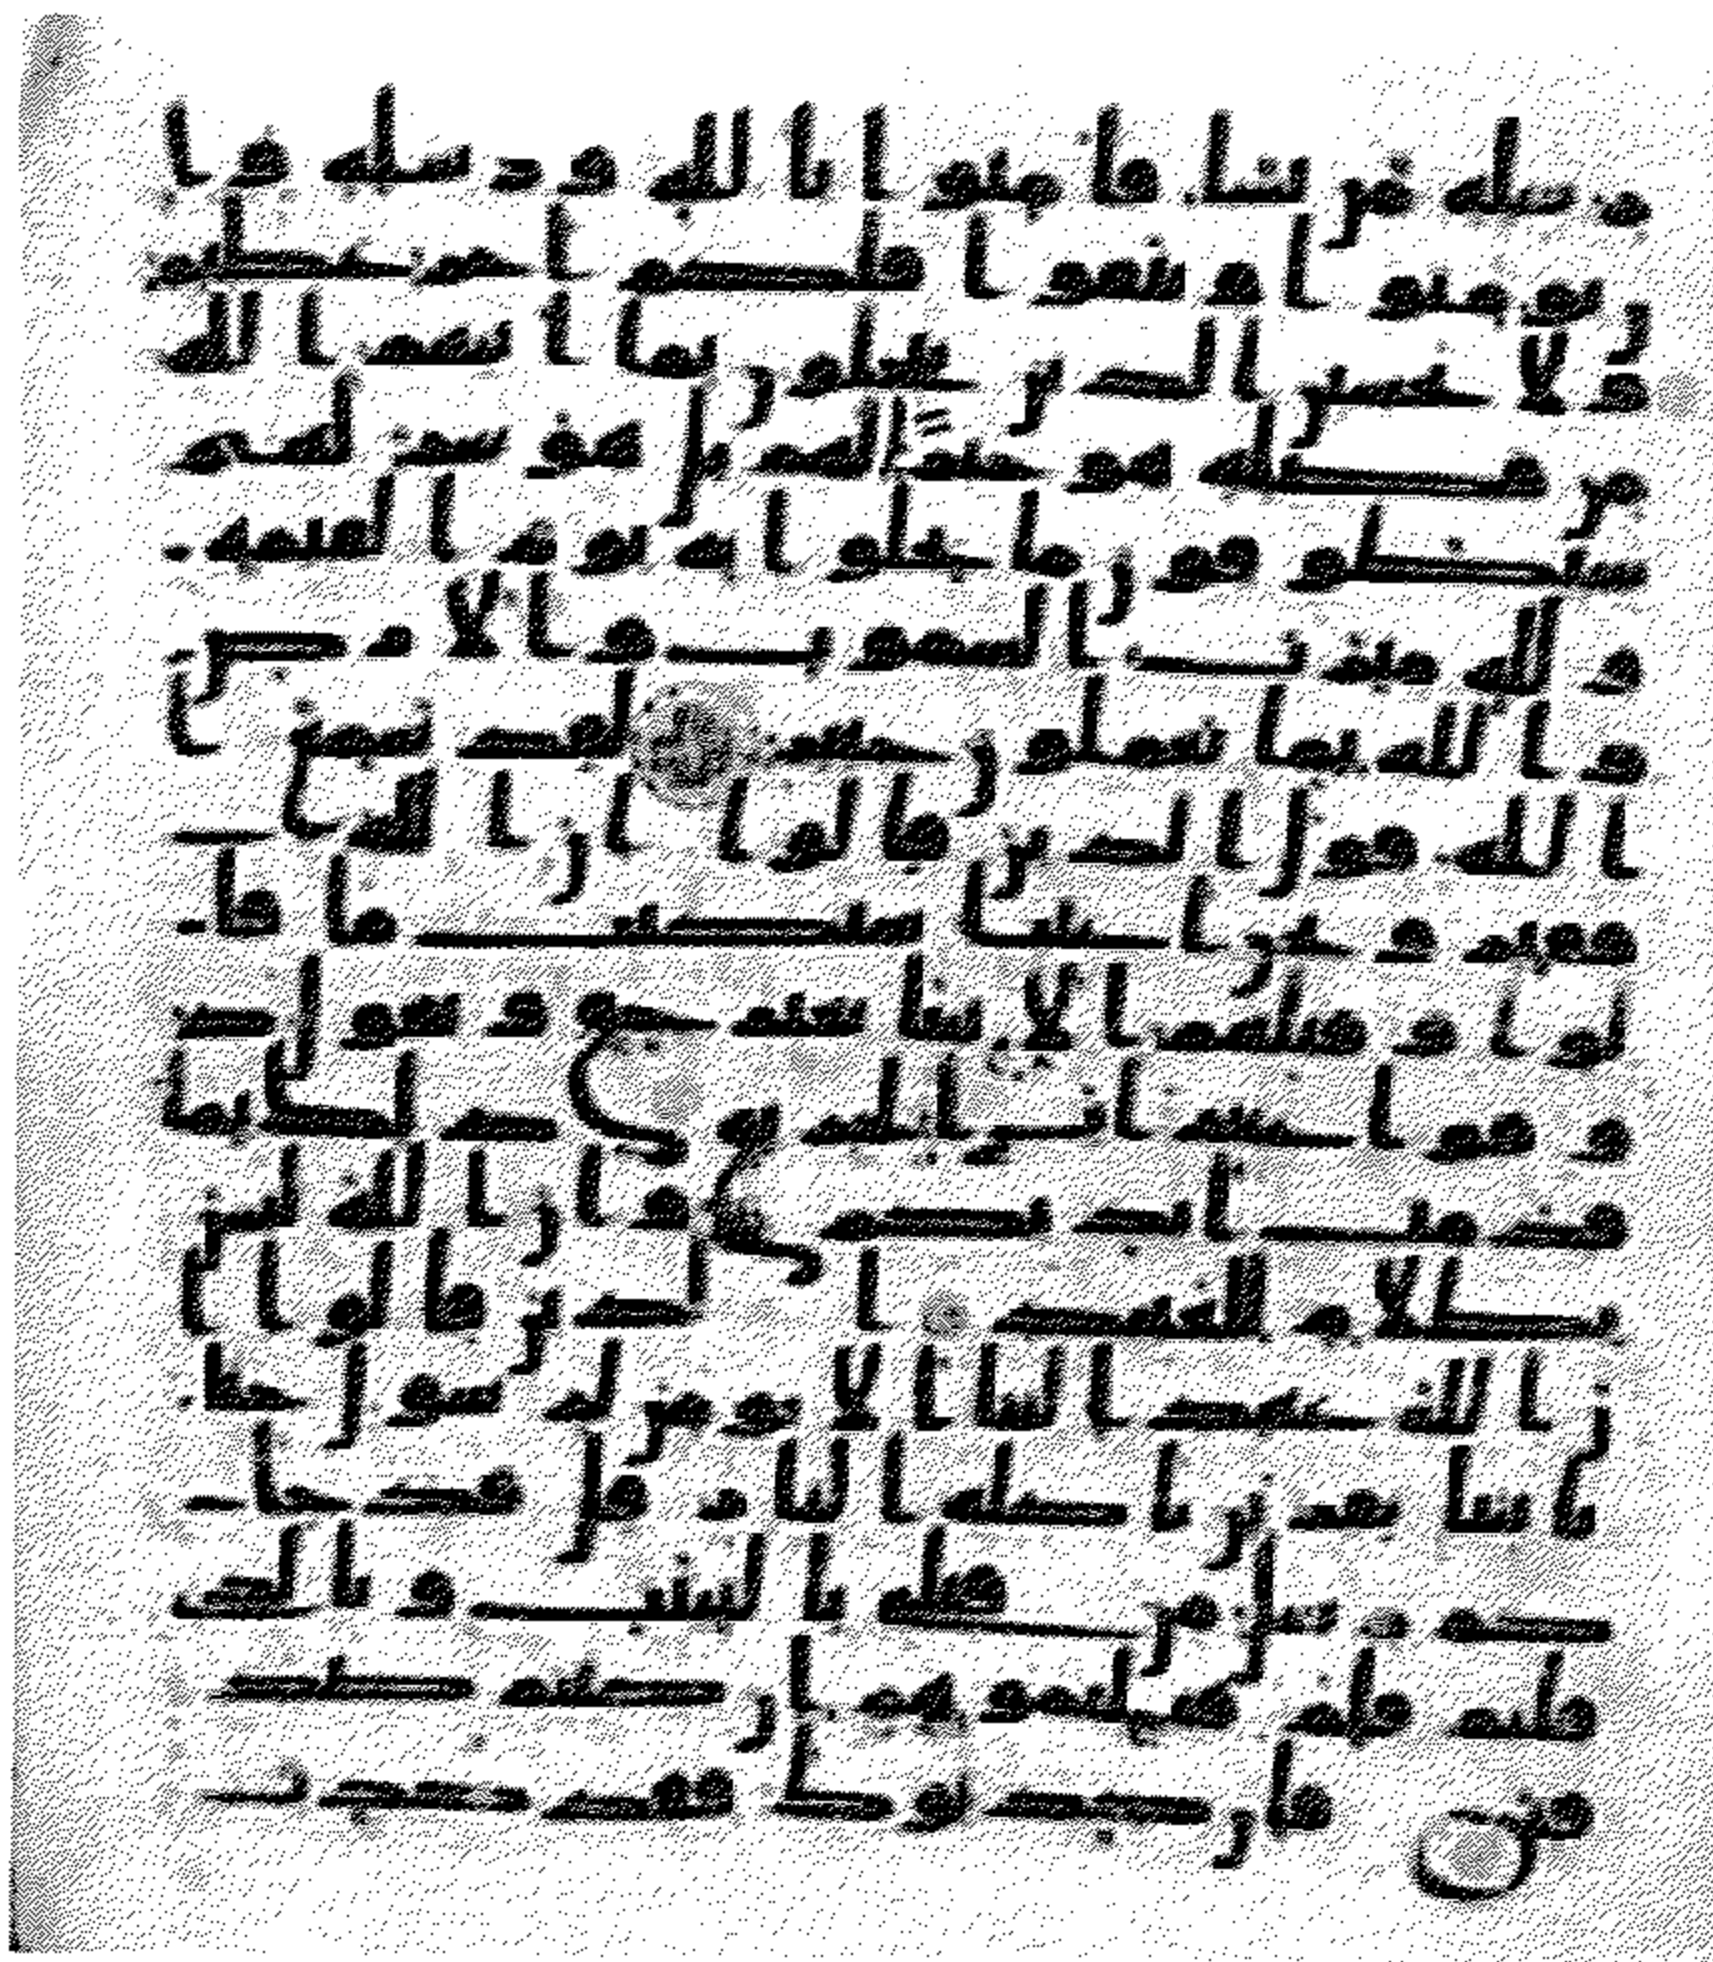 رسله من يشا فامنوا بالله ورسله وا
ن تومنوا وتتقوا فلكم اجر عظيم
ولا يحسبن الذين يبخلون بما اتيهم الله
من فضله هو خيرا لهم بل هو شر لهم
سيطوقون ما بخلوا به يوم القيمه
ولله ميرث السموت والارض
والله بما تعملون خبير لقد سمع ا
لله قول الذين قالوا ان الله
فقير ونحن اغنيا سنكتب ما قا
لوا وقتلهم الانبيا بغير حق ونقول ذ
وقوا عذاب الحريق ذلك بما
قدمت ايديكم وان الله ليس
بظلام للعبيد الذين قالوا ا
ن الله عهد الينا الا نومن لرسول حتى
ياتينا بقربان تاكله النار قل قد جا
كم رسل من قبلي بالبينت وبالذي
قلتم فلم قتلتموهم ان كنتم صد
قين فان كذبوك فقد كذب